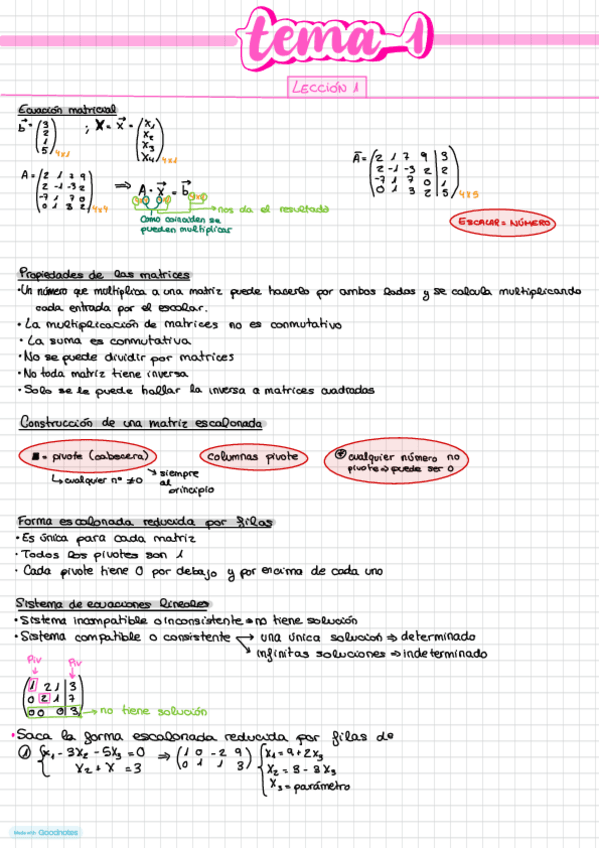 tema-1
LECCIÓN 1
Ecuación matricial
b⃗ = (3 2 1 5) 4x1 ; X = x⃗ = (x₁ x₂ x₃ x₄) 4x1
A = (2 1 7 9
2 -1 -3 2
-7 1 7 0
0 1 3 2) 4x4 ⟹ A · x⃗ = b⃗
nos da el resultado
Como coinciden se
pueden multiplicar
Ā = (2 1 7 9 | 3
2 -1 -3 2 | 2
-7 1 7 0 | 1
0 1 3 2 | 5) 4x5
ESCALAR = NÚMERO
Propiedades de las matrices
·Un número que multiplica a una matriz puede hacerlo por ambos lados y se calcula multiplicando
cada entrada por el escalar.
· La multiplicación de matrices no es conmutativo
· La suma es conmutativa
· No se puede dividir por matrices
· No toda matriz tiene inversa
· Solo se le puede hallar la inversa a matrices cuadradas
Construcción de una matriz escalonada
■ = pivote (cabecera)
↳ cualquier nº ≠0
↘ siempre
al
principio
columnas pivote
cualquier número no
pivote ⇒ puede ser 0
Forma escalonada reducida por filas
· Es única para cada matriz
· Todos los pivotes son 1
· Cada pivote tiene 0 por debajo y por encima de cada uno
Sistema de ecuaciones lineales
· Sistema incompatible o inconsistente ⇒ no tiene solución
· Sistema compatible o consistente → una única solución ⇒ determinado
↘ infinitas soluciones ⇒ indeterminado
Piv Piv
(1 2 1 | 3
0 2 1 | 7
0 0 0 | 3) → no tiene solución
· Saca la forma escalonada reducida por filas de
① { x₁ - 3x₂ - 5x₃ = 0 ⇒ (1 0 -2 9) { x₁ = 9 + 2x₃
x₂ + x = 3 (0 1 1 3) x₂ = 3 - 3x₃
x₃ = parámetro
Made with Goodnotes